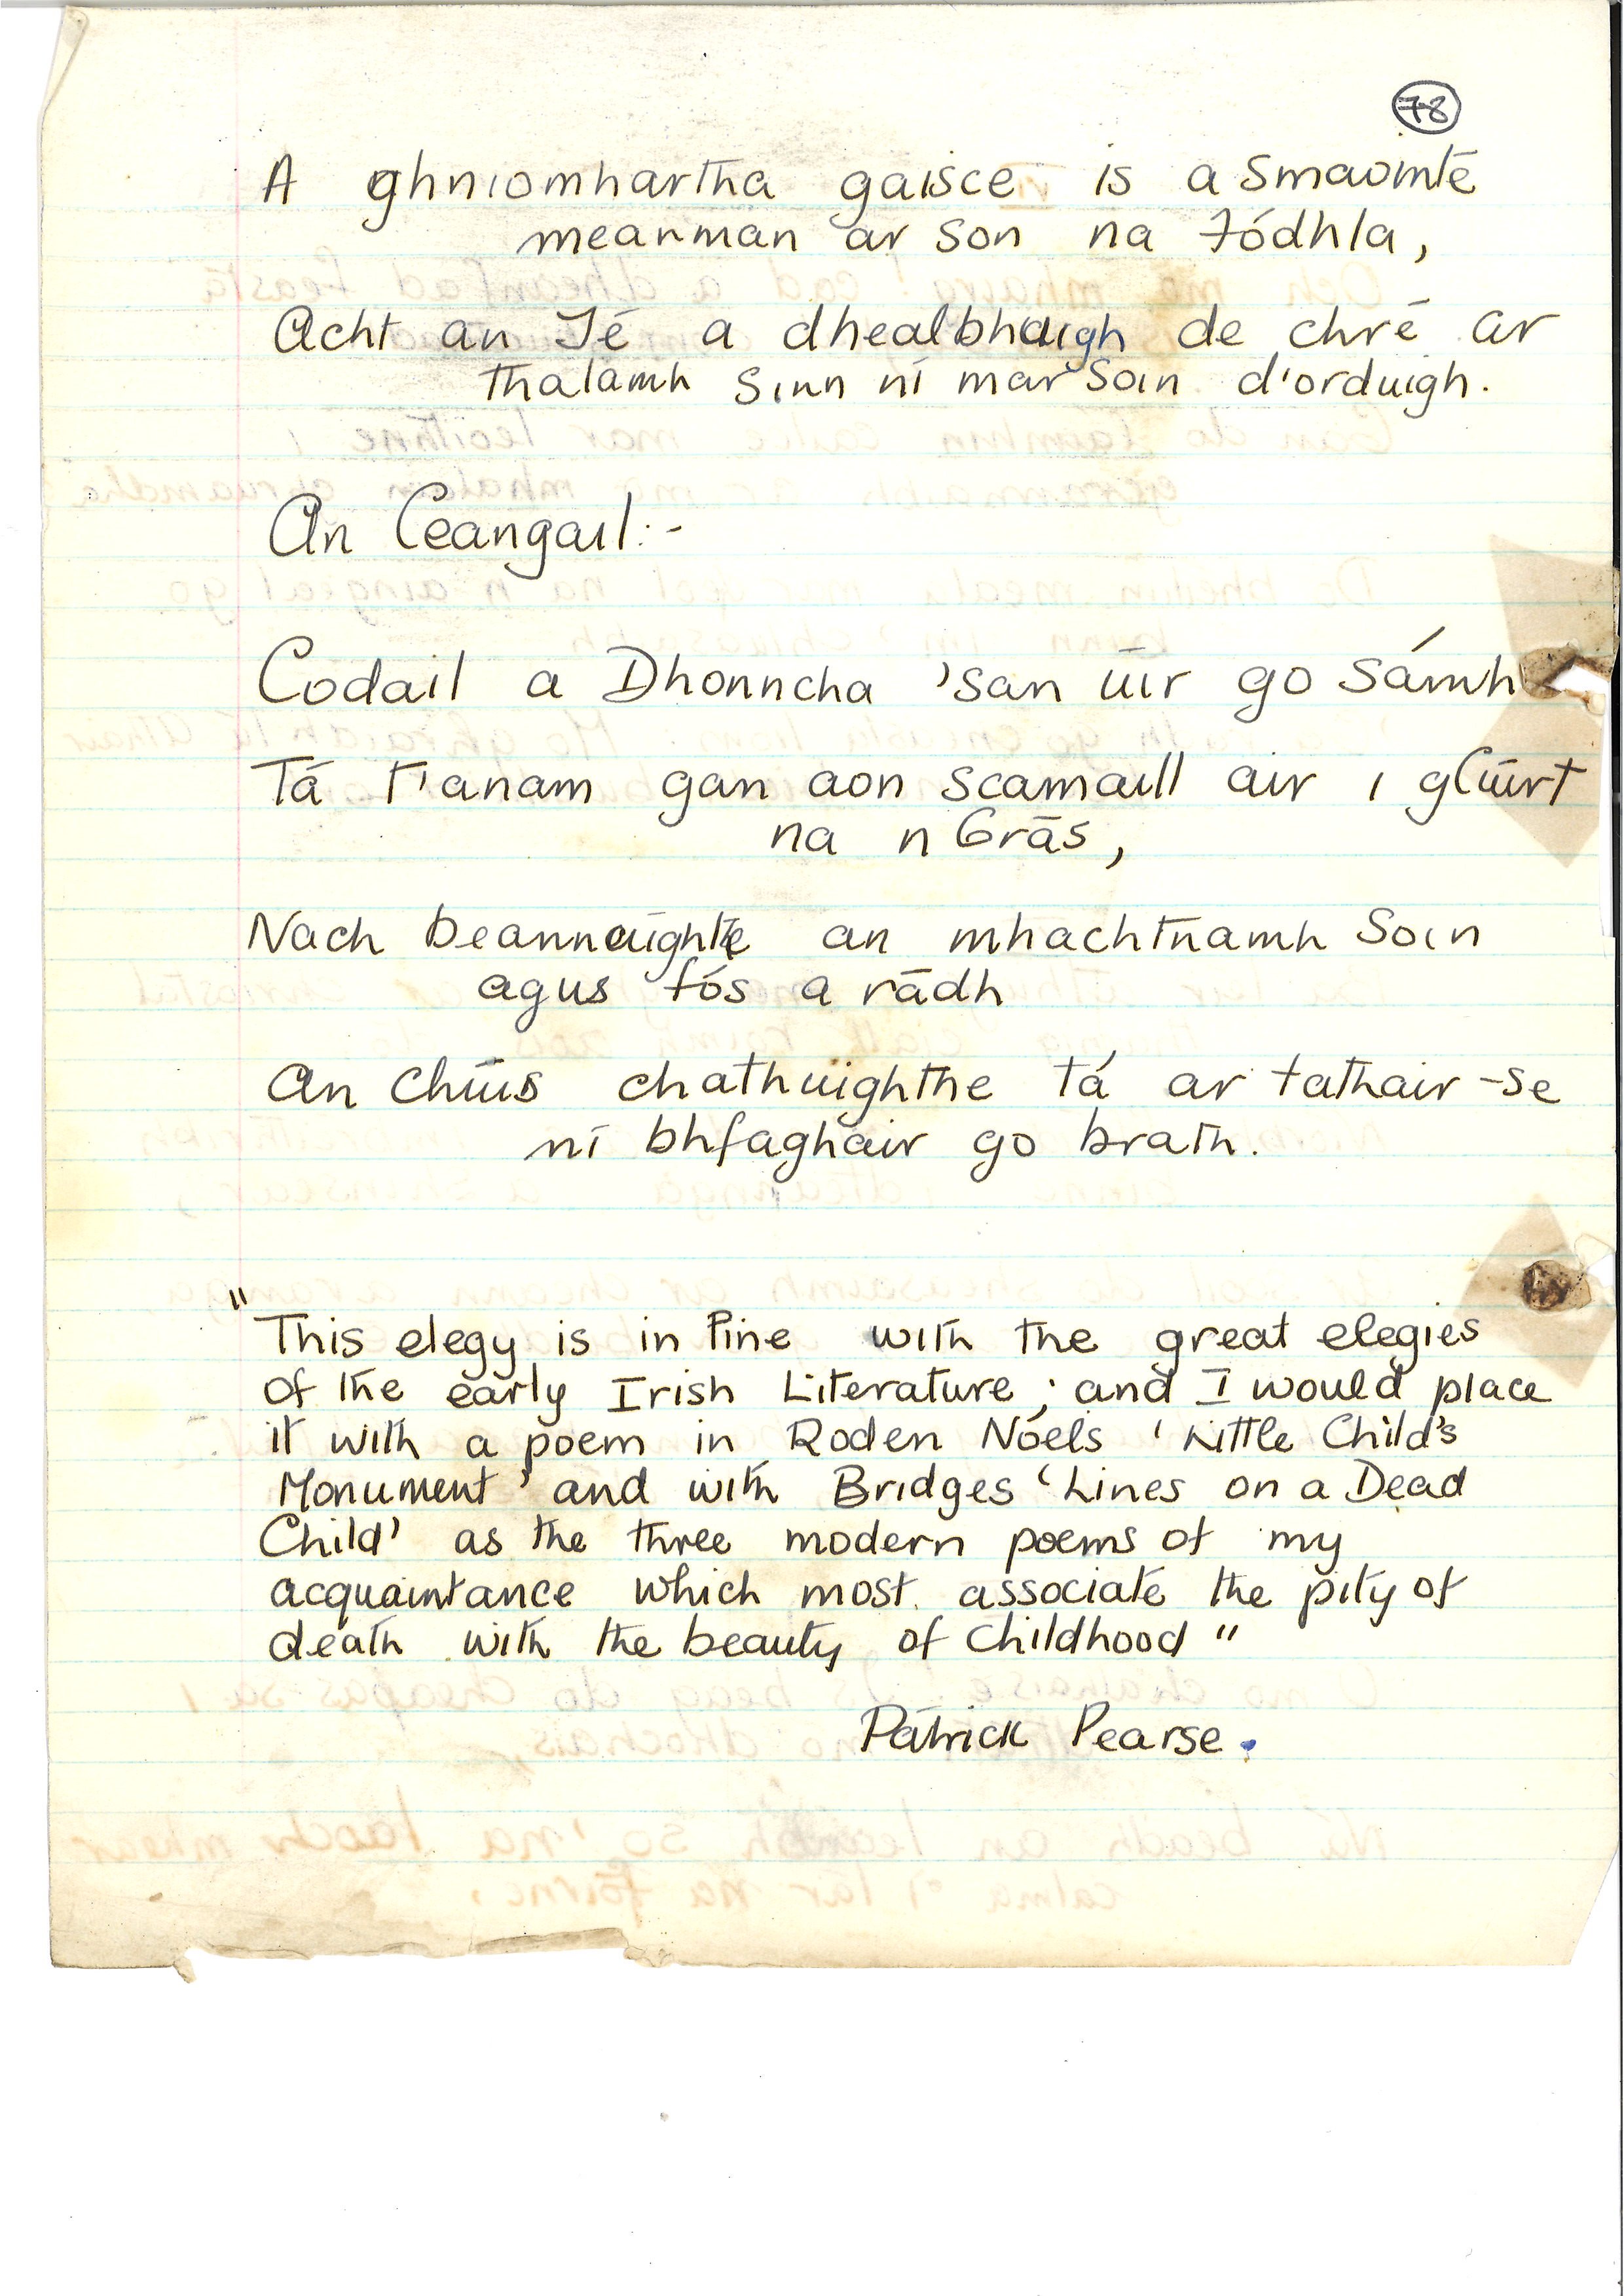 78
A ghniomhartha gaisce is a smaointe
mearnman ar son na Fódhla,
Acht an Té a dhealbhuigh de chré ar
thalamh sinn ní mar soin d'orduigh.
An Ceangail:-
Codail a Dhonncha 'san úir go sámh
Tá t'anam gan aon scamaill air i gCúirt
na nGrás,
Nach beannuighte an mhachtnamh soin
agus fós a rádh
An chúis chathuighthe tá ar t'athair-se
ní bhfaghair go brath.
"This elegy is in line with the great elegies
of the early Irish Literature; and I would place
it with a poem in Roden Nóels 'Little Child's
Monument' and with Bridges 'Lines on a Dead
Child' as the three modern poems of my
acquaintance which most associate the pity of
death with the beauty of Childhood"
Patrick Pearse.